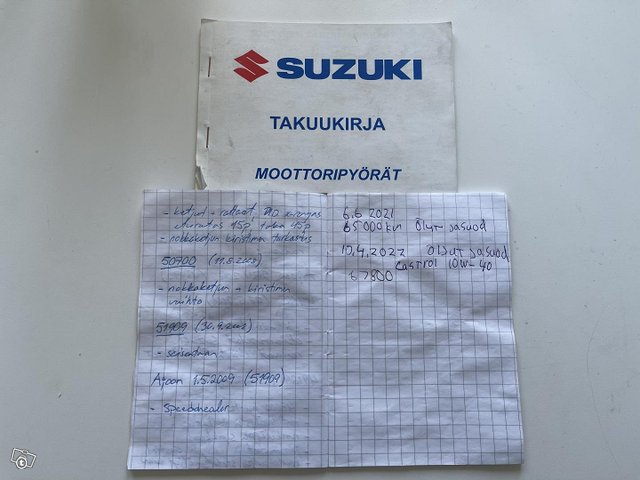 SUZUKI
TAKUUKIRJA
MOOTTORIPYÖRÄT
- ketjut + rattaat, DID
eturatas 15p, taka 45p
- nokkaketjun kiristimen tarkastus
50700 (11.8.2008)
- nokkaketjun + kiristimen
vaihto
51909 (30.9.2008)
- seisontaan
Ajoon 1.5.2009 (51909)
- Speedohealer
6.6 2021
65000km Ölyt jasuod
10.4.2022 Öljyt jasuod
Castrol 10W-40
67800